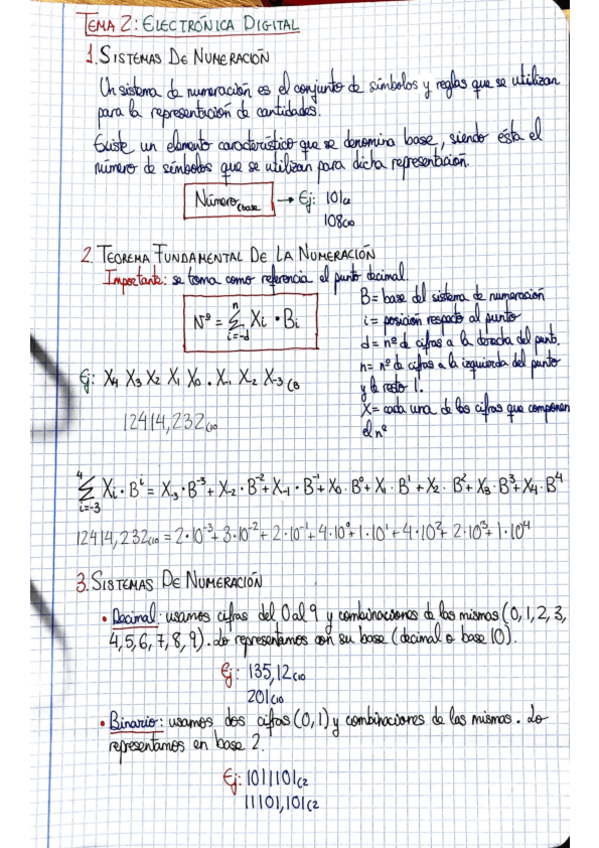 TEMA 2: ELECTRÓNICA DIGITAL
1. SISTEMAS DE NUMERACIÓN
Un sistema de numeración es el conjunto de símbolos y reglas que se utilizan
para la representación de cantidades.
Existe un elemento característico que se denomina base, siendo ésta el
número de símbolos que se utilizan para dicha representación.
Número(base → Ej: 101(2
108(10
2. TEOREMA FUNDAMENTAL DE LA NUMERACIÓN
Importante: se toma como referencia el punto decimal.
B = base del sistema de numeración
Nº = Σ Xi · Bi
n
i=-d
i = posición respecto al punto
d = nº de cifras a la derecha del punt.
n = nº de cifras a la izquierda del punto
y le resto 1.
X = cada una de las cifras que componen
el nº
Ej: X4 X3 X2 X1 X0 . X-1 X-2 X-3 (B
12414,232(10
4
Σ Xi · B^i = X-3 · B^-3 + X-2 · B^-2 + X-1 · B^-1 + X0 · B^0 + X1 · B^1 + X2 · B^2 + X3 · B^3 + X4 · B^4
i=-3
12414,232(10 = 2·10^-3 + 3·10^-2 + 2·10^-1 + 4·10^0 + 1·10^1 + 4·10^2 + 2·10^3 + 1·10^4
3. SISTEMAS DE NUMERACIÓN
• Decimal: usamos cifras del 0 al 9 y combinaciones de las mismas (0, 1, 2, 3,
4, 5, 6, 7, 8, 9). Lo representamos con su base (decimal o base 10).
Ej: 135,12(10
201(10
• Binario: usamos dos cifras (0, 1) y combinaciones de las mismas. Lo
representamos en base 2.
Ej: 1011101(2
11101,101(2